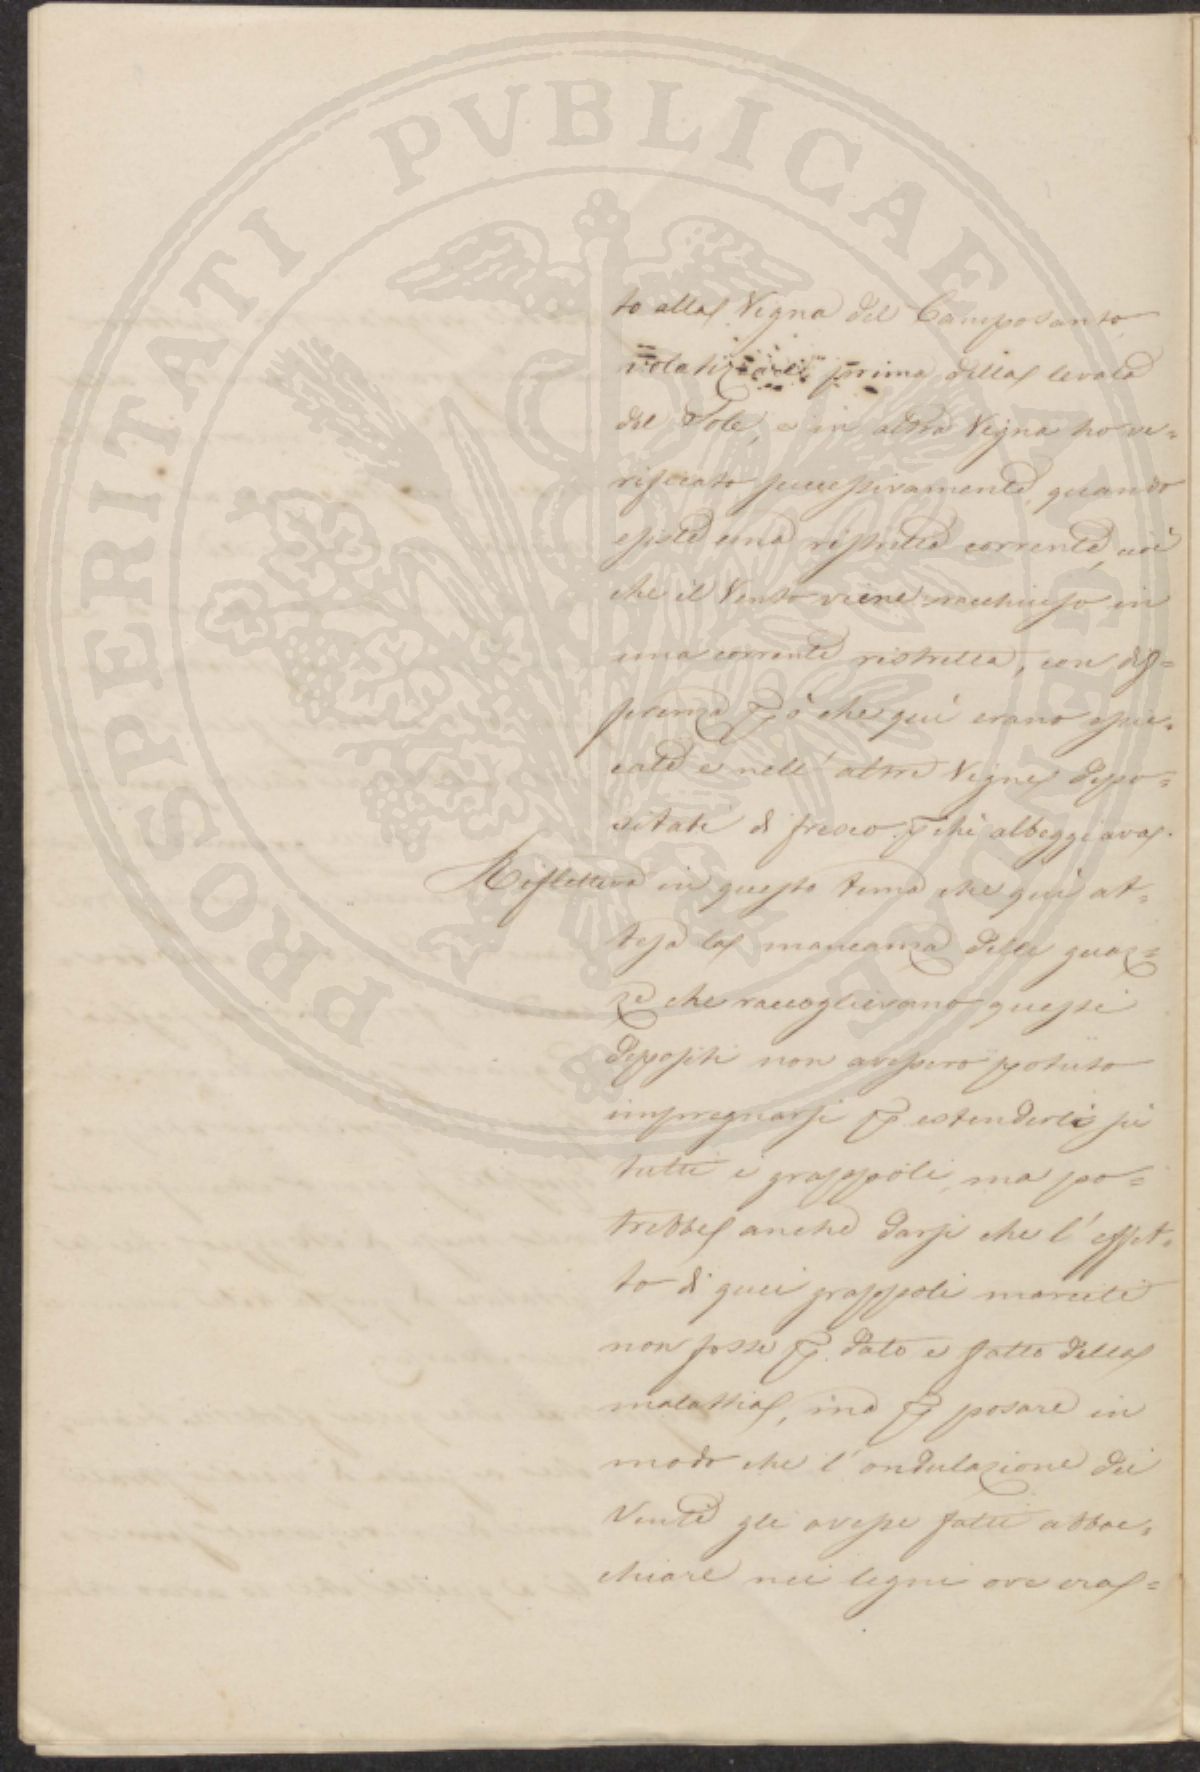 PROSPERITATI PVBLICAE AVGENDAE
to alla Vigna del Camposanto
prima della levata
del Sole, e in altra Vigna ho ve=
rificato successivamente, quando
esiste una ristretta corrente, cioè
che il Vento viene racchiuso in
una corrente ristretta, con dif=
ferenza però che quì erano essic=
cate e nell'altre Vigne depo=
sitate di fresco perchè albeggiava.
Rifletteva in questo tema che quì at=
tesa la mancanza delle guaz=
ze che raccoglievano questi
depositi non avessero potuto
impregnarsi per estenderli su
tutti i grappoli, ma po=
trebbe anche darsi che l'effet=
to di quei grappoli marciti
non fosse per dato e fatto della
malattia, ma per posare in
modo che l'ondulazione dei
Venti gli avesse fatti abbac=
chiare nei legni ove era=